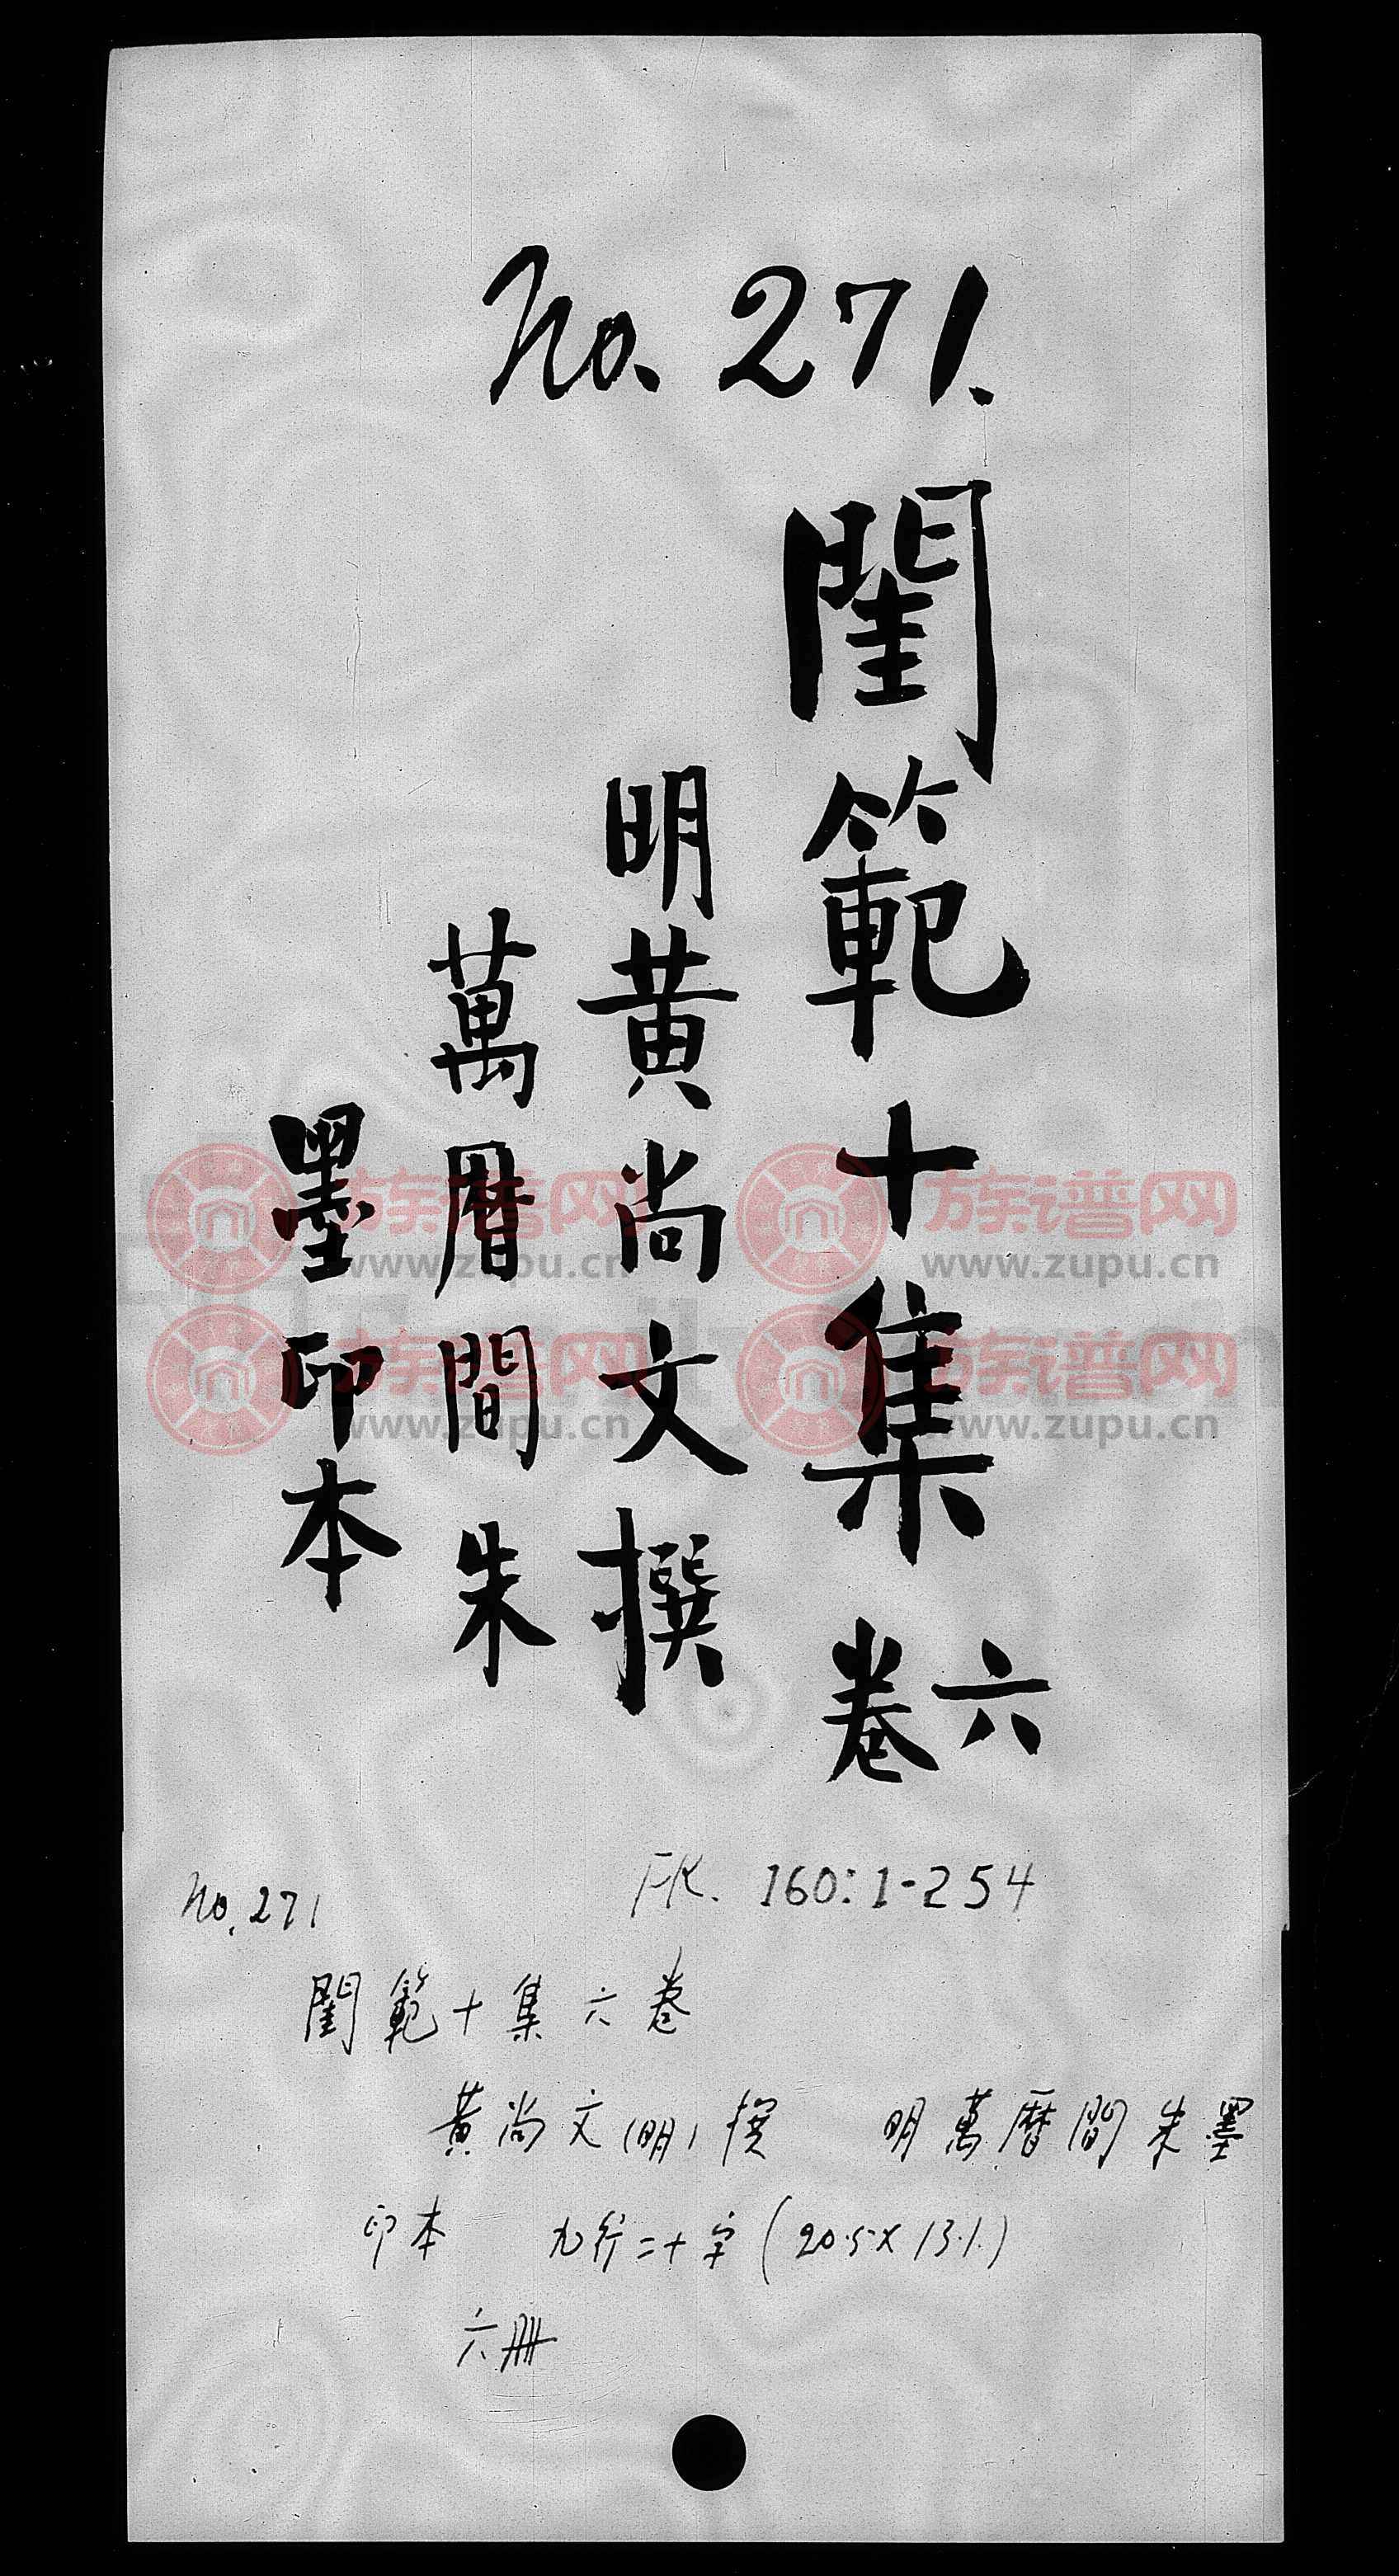 No. 271.
閨範十集六卷
明黃尚文撰
萬曆間朱
墨印本
族谱网 www.zupu.cn
族谱网 www.zupu.cn
族谱网 www.zupu.cn
族谱网 www.zupu.cn
FR. 160:1-254
No. 271
閨範十集六卷
黃尚文(明)撰 明萬曆間朱墨
印本 九行二十字(20.5×13.1.)
六冊